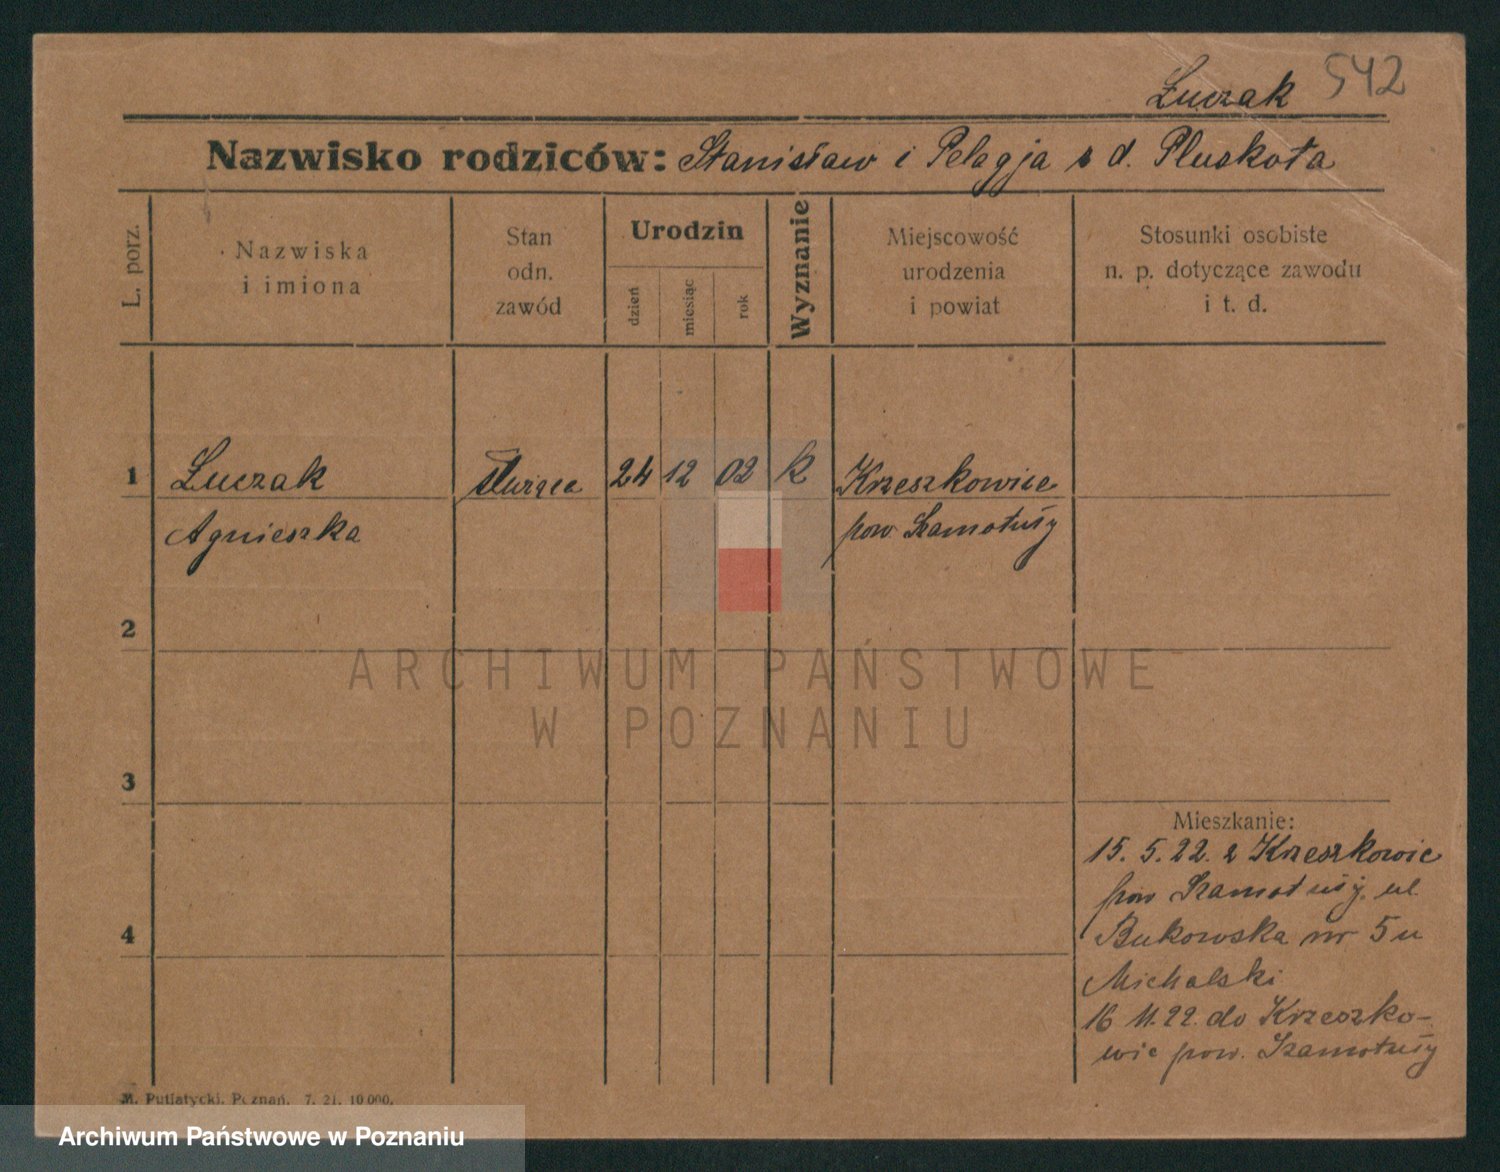 Łuczak 542
Nazwisko rodziców: Stanisław i Pelagja z d. Pluskota
L. porz.
Nazwiska
i imiona
Stan
odn.
zawód
Urodzin
dzień
miesiąc
rok
Wyznanie
Miejscowość
urodzenia
i powiat
Stosunki osobiste
n. p. dotyczące zawodu
i t. d.
1 Łuczak służąca 24 12 02 k Krzeszkowice
Agnieszka pow. Szamotuły
2
ARCHIWUM PAŃSTWOWE
W POZNANIU
3
Mieszkanie:
15. 5. 22. z Krzeszkowic
pow Szamotuły, ul
4
Bukowska nr 5 u
Michalski
16 11. 22. do Krzeszko-
wic pow. Szamotuły
M. Putiatycki, Poznań. 7. 21. 10 000.
Archiwum Państwowe w Poznaniu